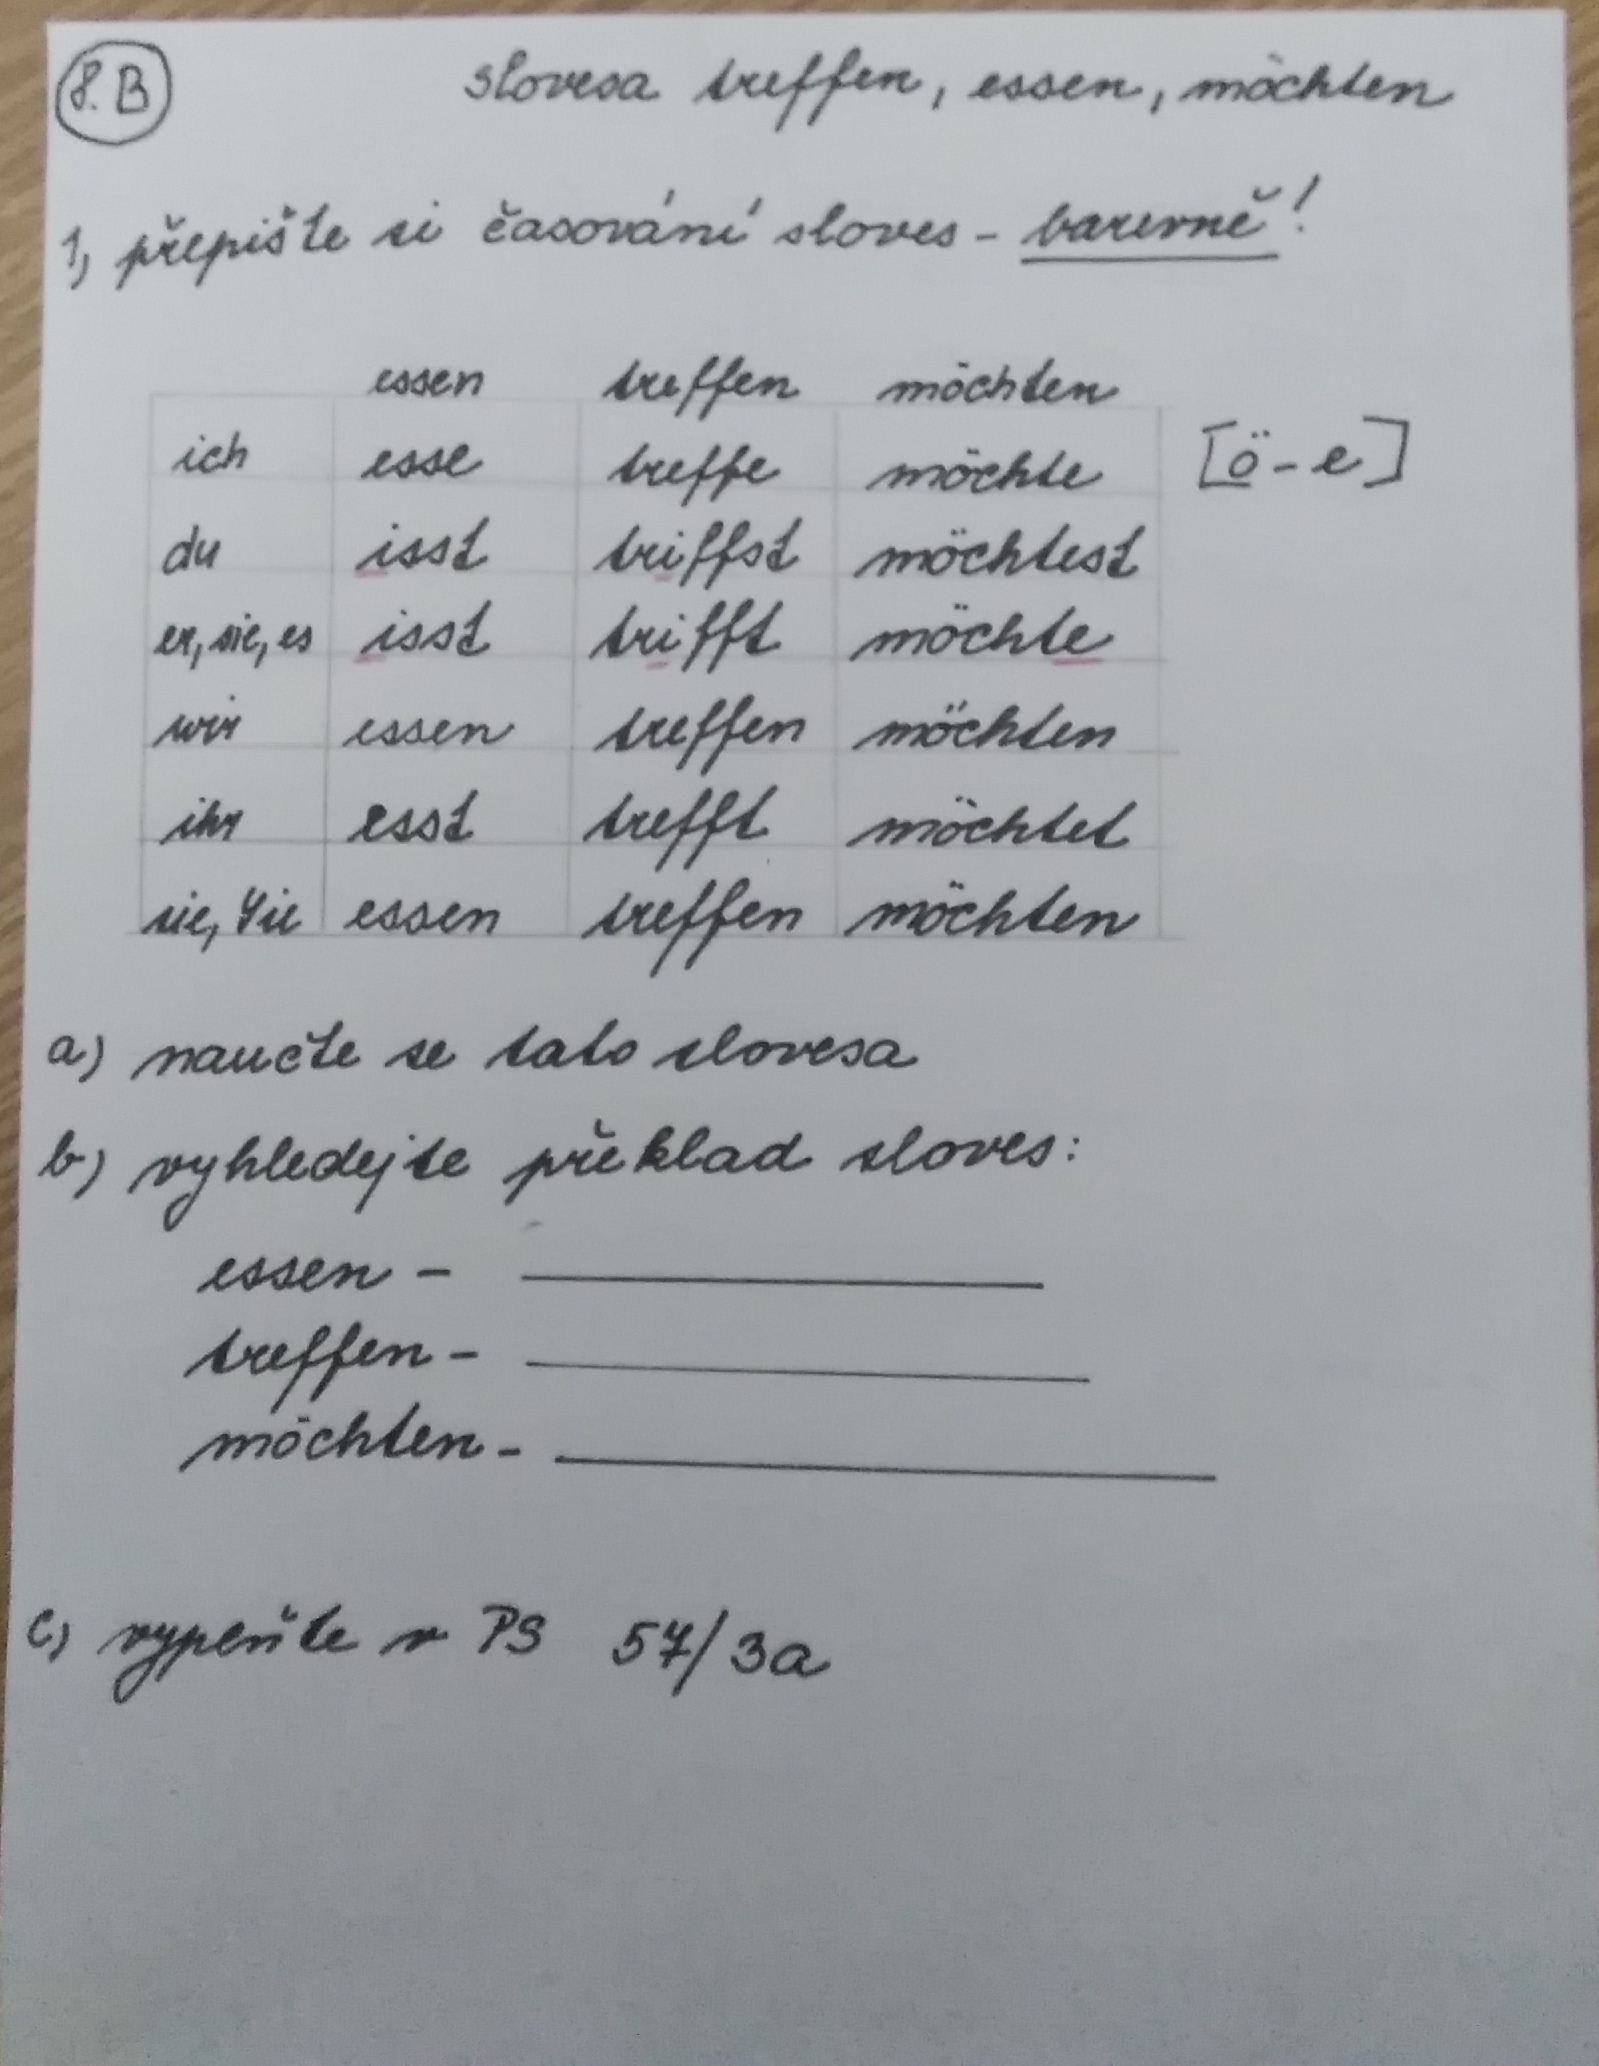 8.B
slovesa treffen, essen, möchten
1, přepište si časování sloves - barevně!
essen treffen möchten
ich esse treffe möchte [ö-e]
du isst triffst möchtest
er, sie, es isst trifft möchte
wir essen treffen möchten
ihr esst trefft möchtet
sie, Sie essen treffen möchten
a) naučte se tato slovesa
b) vyhledejte překlad sloves:
essen -
treffen -
möchten -
c) vypište v PS 57/3a